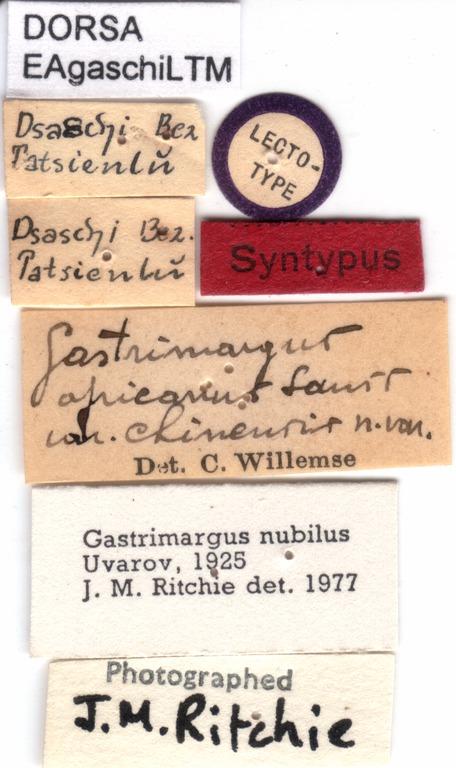 DORSA
EAgaschiLTM
Dsaschi Bez
Tatsienlŭ
LECTO-
TYPE
Dsaschi Bez.
Tatsienlŭ
Syntypus
Gastrimargus
africanus Sauss
var. chinensis n. var.
Det. C. Willemse
Gastrimargus nubilus
Uvarov, 1925
J. M. Ritchie det. 1977
Photographed
J.M.Ritchie